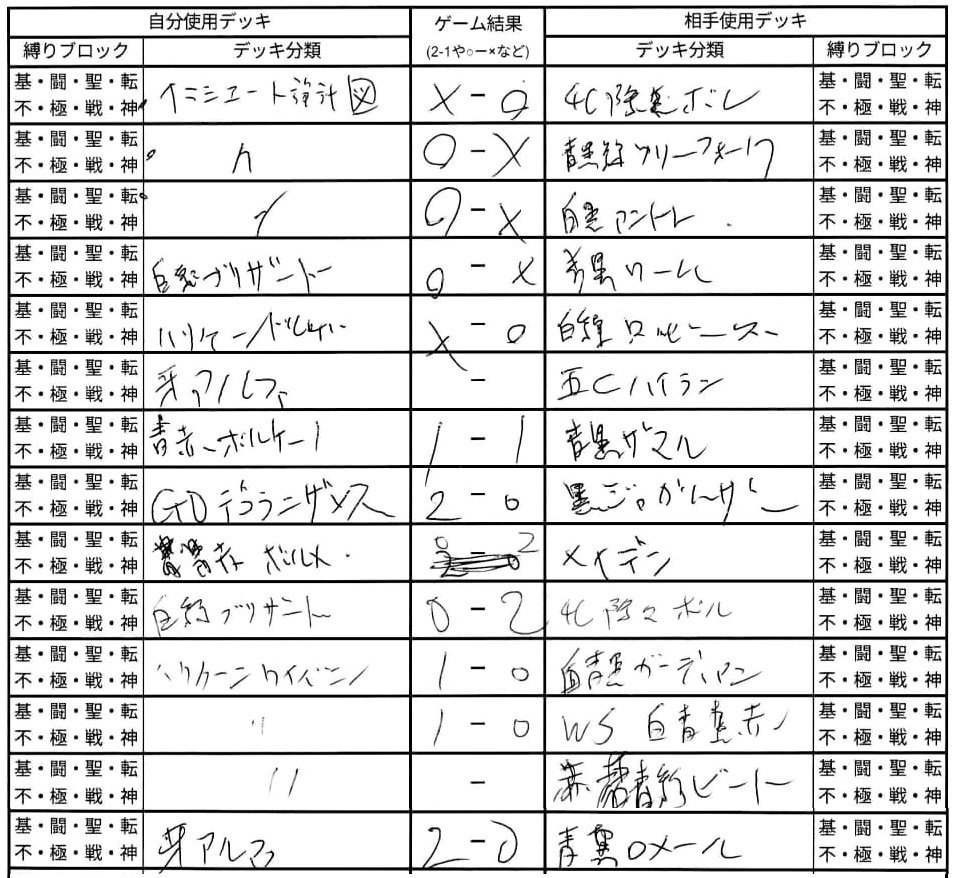 自分使用デッキ ゲーム結果 相手使用デッキ
縛りブロック デッキ分類 (2-1や○ー×など) デッキ分類 縛りブロック
基・闘・聖・転 基・闘・聖・転
イニシエート設計図 × - ○ 4C除去ボル
不・極・戦・神 不・極・戦・神
基・闘・聖・転 基・闘・聖・転
〃 ○ - × 青黒緑フリーフォーク
不・極・戦・神 不・極・戦・神
基・闘・聖・転 基・闘・聖・転
〃 ○ - × 白黒アントレ
不・極・戦・神 不・極・戦・神
基・闘・聖・転 基・闘・聖・転
白緑ブリザード ○ - × 青黒ワーム
不・極・戦・神 不・極・戦・神
基・闘・聖・転 基・闘・聖・転
ハリケーン × - ○ 白緑
不・極・戦・神 不・極・戦・神
基・闘・聖・転 基・闘・聖・転
牙アルファ - 五Cハイラン
不・極・戦・神 不・極・戦・神
基・闘・聖・転 基・闘・聖・転
青赤ボルケーノ 1 - 1 青黒ザマル
不・極・戦・神 不・極・戦・神
基・闘・聖・転 基・闘・聖・転
GDデュランザメス 2 - 0 黒
不・極・戦・神 不・極・戦・神
基・闘・聖・転 基・闘・聖・転
青赤 ボルメ 0 - 2 メイデン
不・極・戦・神 不・極・戦・神
基・闘・聖・転 基・闘・聖・転
白緑ブリザード 0 - 2 4C除去ボル
不・極・戦・神 不・極・戦・神
基・闘・聖・転 基・闘・聖・転
ハリケーンワイバーン 1 - 0 白青黒ガーディアン
不・極・戦・神 不・極・戦・神
基・闘・聖・転 基・闘・聖・転
〃 1 - 0 WS 白青黒赤
不・極・戦・神 不・極・戦・神
基・闘・聖・転 基・闘・聖・転
〃 - 赤青緑ビート
不・極・戦・神 不・極・戦・神
基・闘・聖・転 基・闘・聖・転
牙アルファ 2 - 0 青黒ロメール
不・極・戦・神 不・極・戦・神